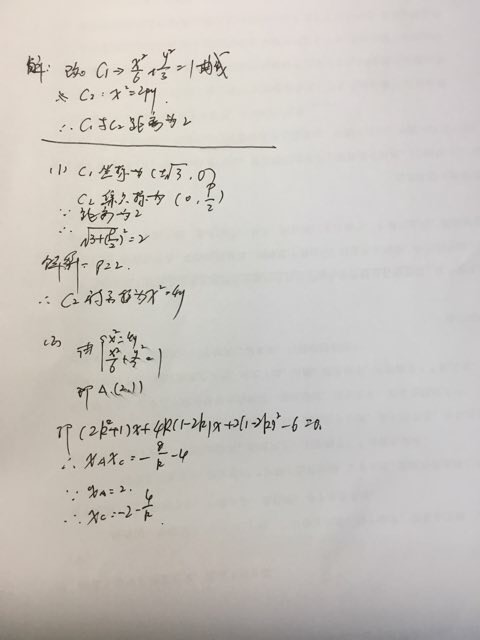 解: 已知 C₁ → x²/6 + y²/3 = 1 曲线
C₂: x²=2py.
∴ C₁与C₂距离为2
(1) C₁坐标为 (±√3, 0)
C₂焦点标为 (0, p/2)
∵ 距离为2
∴ √3+(p/2)² = 2
解得 = p=2.
∴ C₂的方程为x²=4y
(2) 由 { x²=4y x²/6 + y²/3 = 1
即 A (2,1)
即 (2k²+1)x+4k(1-2k)x+2(1-2k)²-6=0.
∴ xAxC = -8/k -4
∵ xA=2.
∴ xC=-2-4/k.